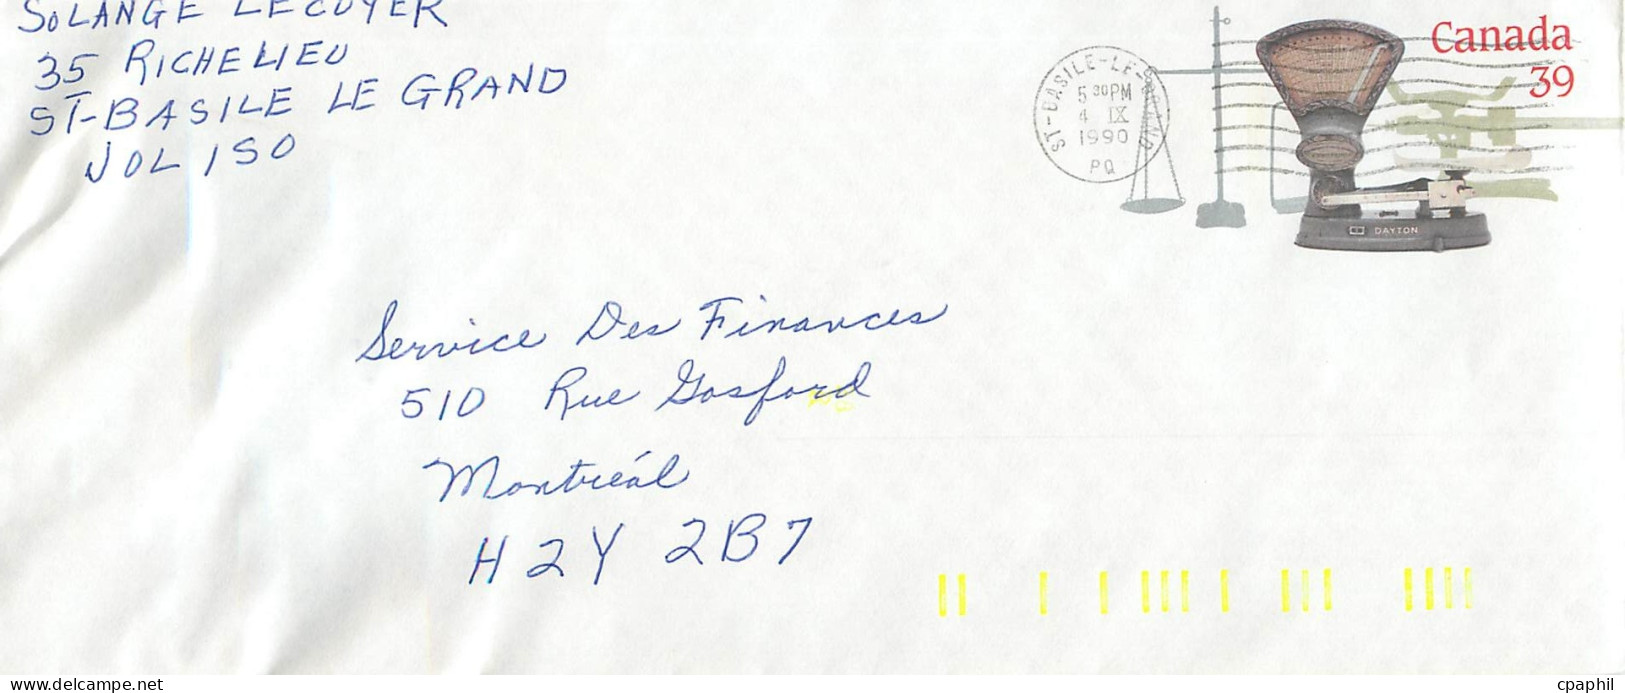 SOLANGE LECUYER
35 RICHELIEU
ST-BASILE LE GRAND
JOL 1SO
Canada
39
ST-BASILE-LE-GRAND
5 30PM
4 IX
1990
PQ
DAYTON
Service Des Finances
510 Rue Gosford
Montréal
H2Y 2B7
www.delcampe.net
cpaphil